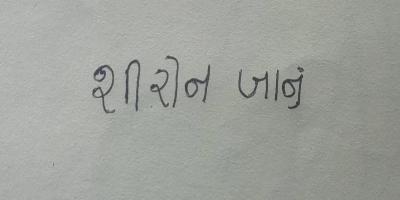 શીરીન જાનું